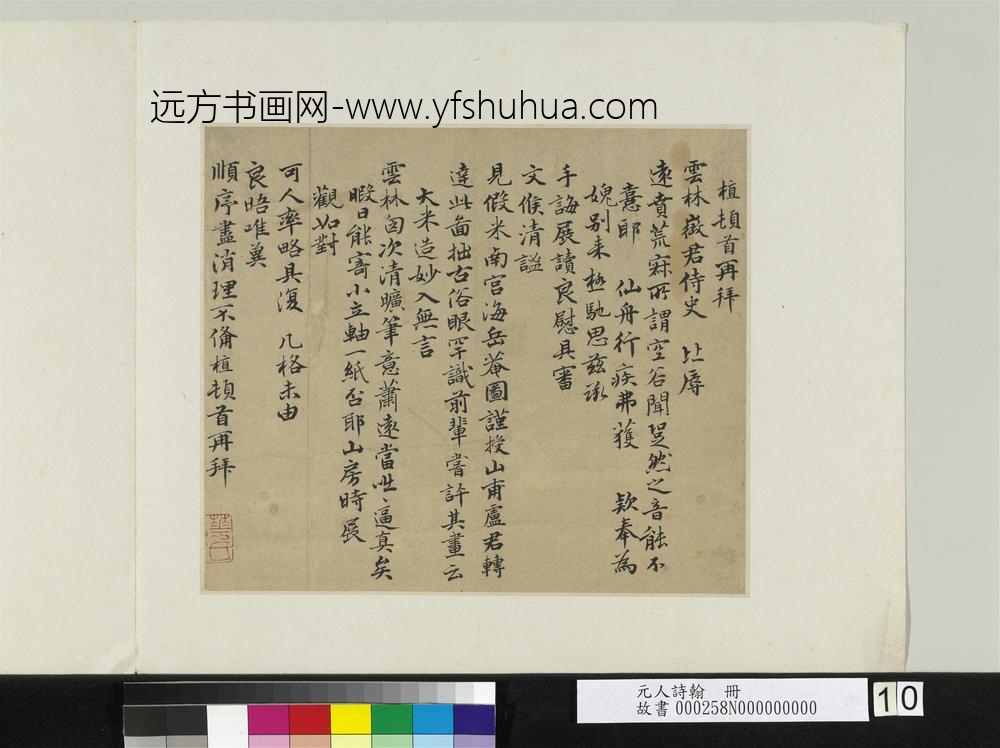 远方书画网-www.yfshuhua.com
植頓首再拜
雲林徵君侍史 比辱
遠賁荒寂所謂空谷聞跫然之音能不
憙耶 仙舟行疾弗獲 欵奉為
媿别来極馳思兹承
手誨展讀良慰具審
文候清謐
見假米南宫海岳菴圖謹授山甫盧君轉
達此畐拙古俗眼罕識前輩嘗許其畫云
大米造妙入無言
雲林匈次清曠筆意蕭遠當咄〻逼真矣
暇日能寄小立軸一紙否耶山房時展
觀如對
可人率略具復 几格未由
良晤唯冀
順序盡消理不僃植頓首再拜
元人詩翰 冊
故書 000258N000000000
10